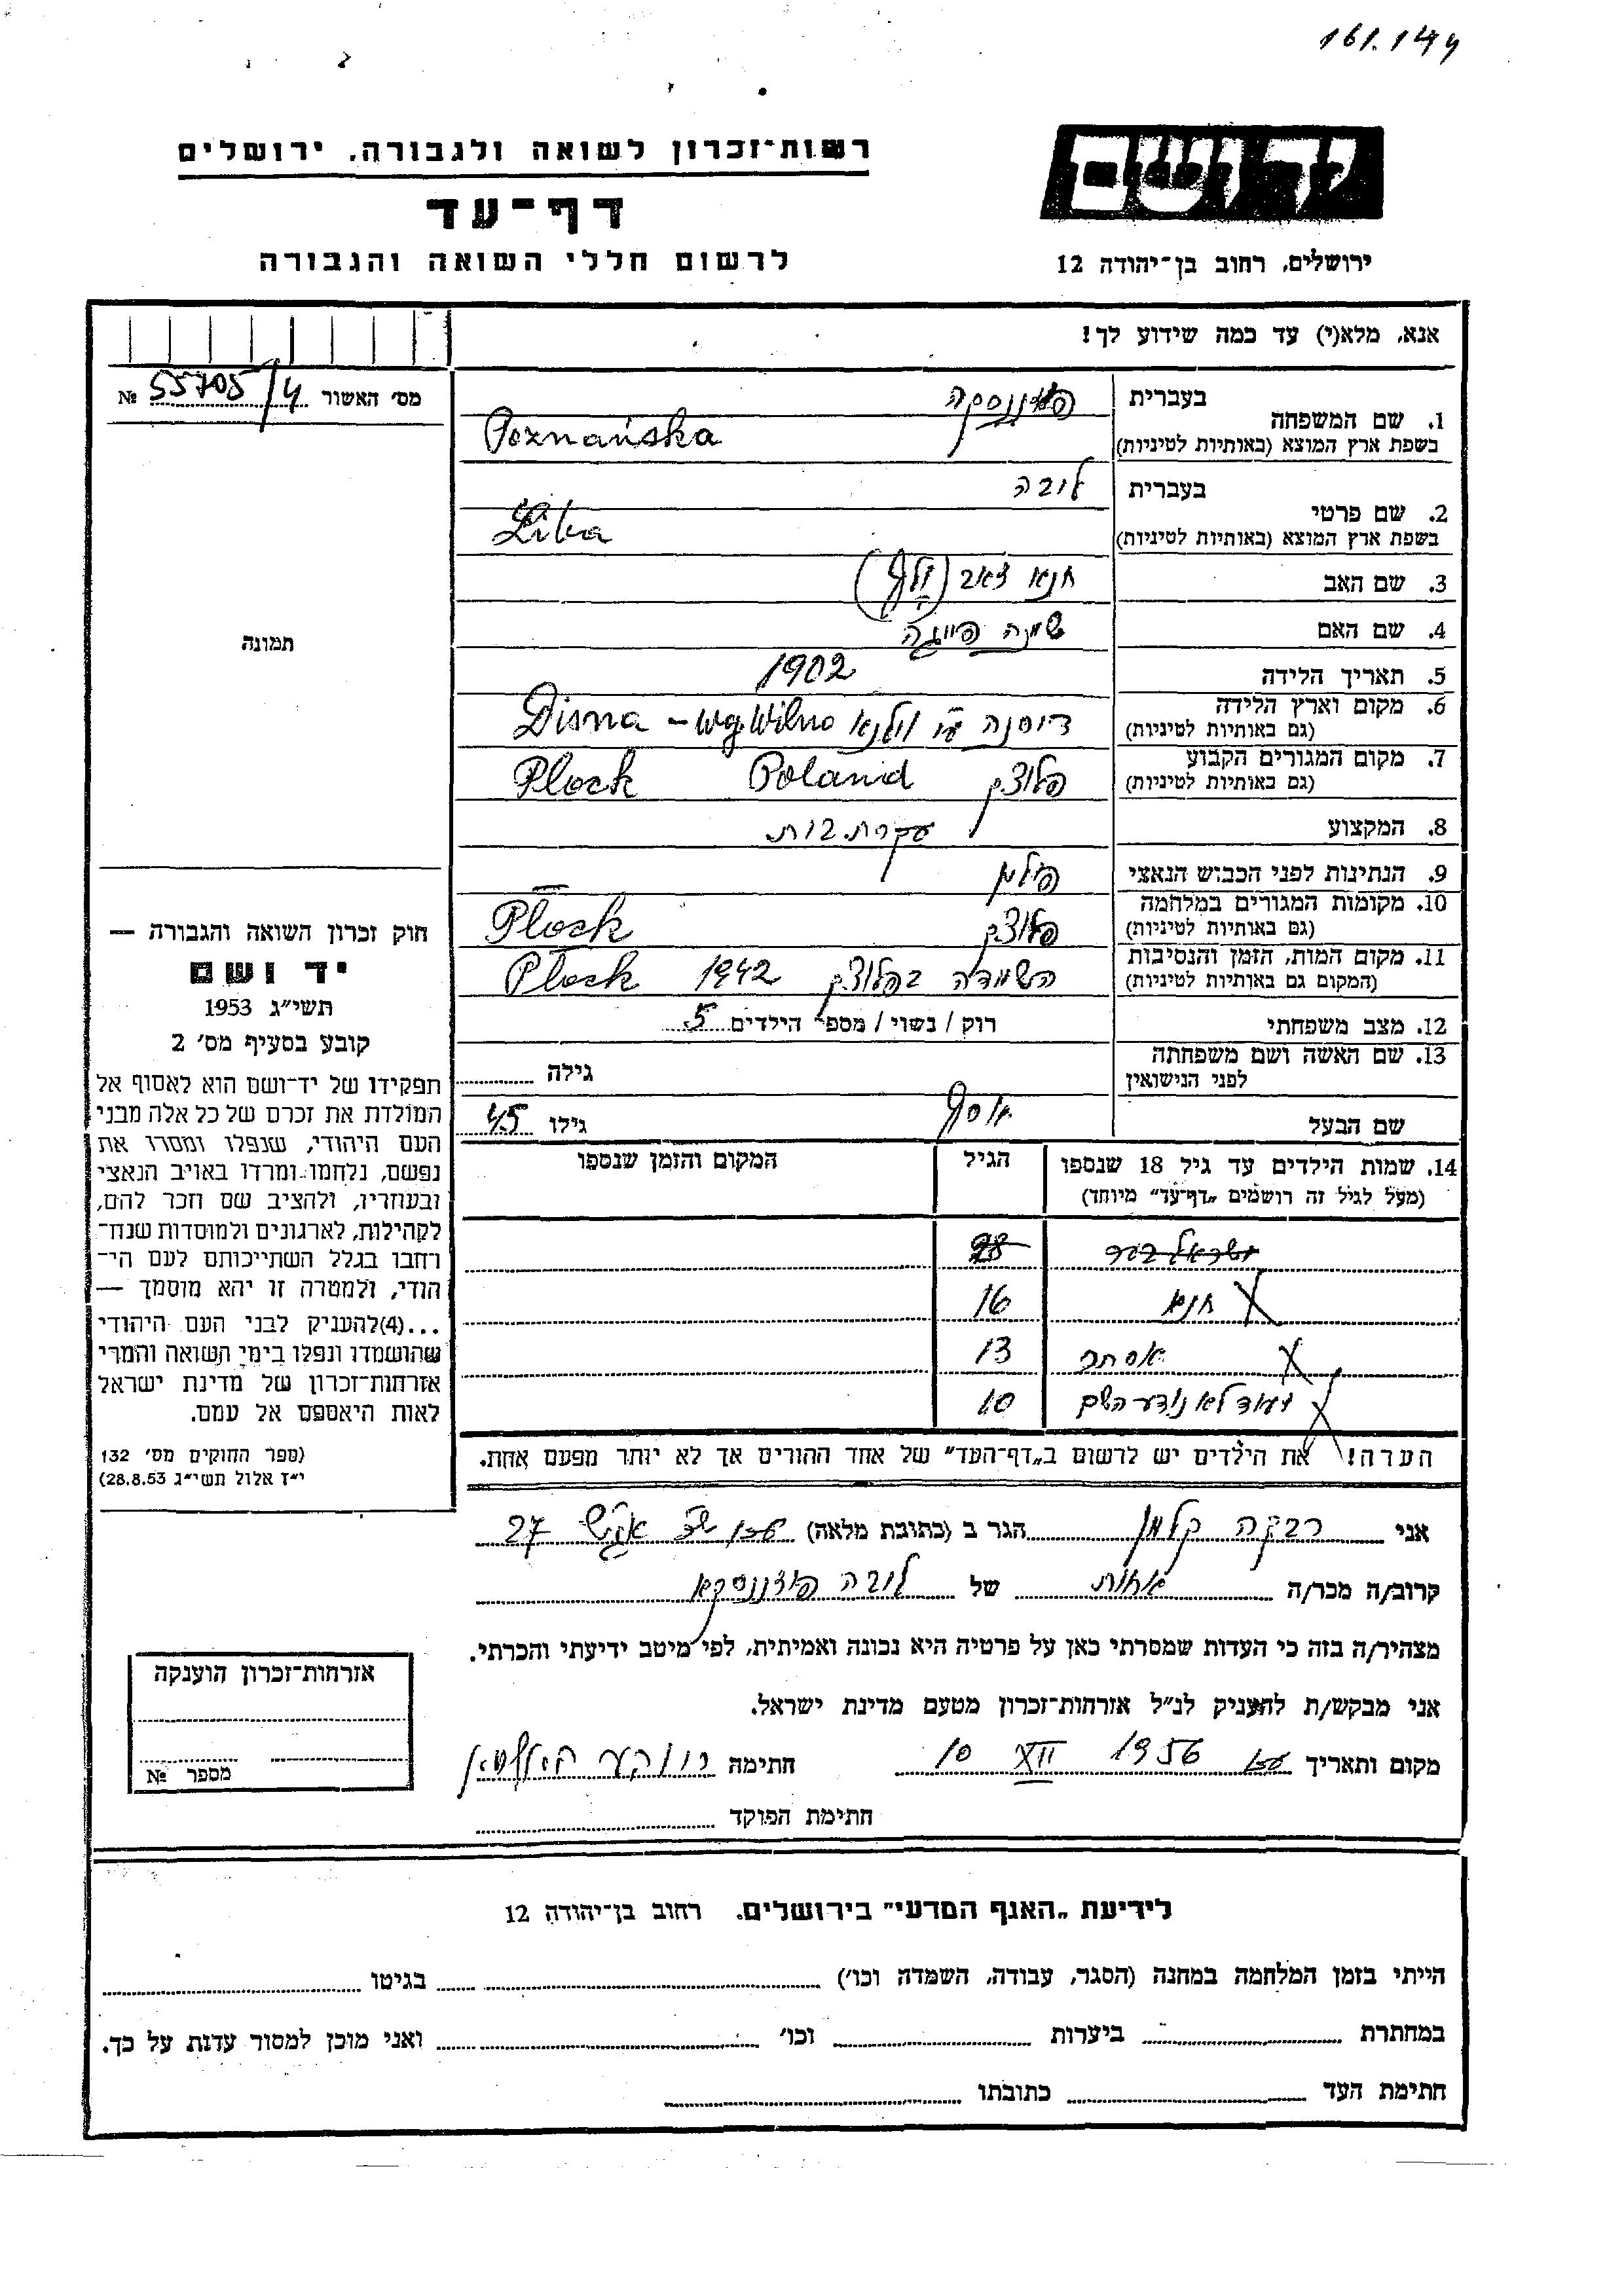 161.144
יד ושם
רשות־זכרון לשואה ולגבורה, ירושלים
דף־עד
לרשום חללי השואה והגבורה
ירושלים, רחוב בן־יהודה 12
אנא, מלא(י) עד כמה שידוע לך!
מס׳ האשור 55705/4 №
1. שם המשפחה בעברית
בשפת ארץ המוצא (באותיות לטיניות) Poznańska
2. שם פרטי בעברית ליבה
בשפת ארץ המוצא (באותיות לטיניות) Liba
3. שם האב חנא זאב (וולף)
4. שם האם פייגה
5. תאריך הלידה 1902
6. מקום וארץ הלידה דיסנה ע״י וילנא Disna – wg. Wilno
(גם באותיות לטיניות)
7. מקום המגורים הקבוע פלוצק Poland Plock
(גם באותיות לטיניות)
8. המקצוע עקרת בית
9. הנתינות לפני הכבוש הנאצי פולין
10. מקומות המגורים במלחמה פלוצק Plock
(גם באותיות לטיניות)
11. מקום המות, הזמן והנסיבות השמדה בפלוצק 1942 Plock
(המקום גם באותיות לטיניות)
12. מצב משפחתי רוק / נשוי / מספר הילדים 5
13. שם האשה ושם משפחתה גילה
לפני הנישואין
שם הבעל יוסף גילו 45
14. שמות הילדים עד גיל 18 שנספו הגיל המקום והזמן שנספו
(מעל לגיל זה רושמים „דף־עד״ מיוחד)
ישראל 28
חנא 16
אסתר 13
ועוד לא נודע השם 10
הערה! את הילדים יש לרשום ב„דף־העד״ של אחד ההורים אך לא יותר מפעם אחת.
תמונה
חוק זכרון השואה והגבורה —
יד ושם
תשי״ג 1953
קובע בסעיף מס׳ 2
תפקידו של יד־ושם הוא לאסוף אל
המולדת את זכרם של כל אלה מבני
העם היהודי, שנפלו ומסרו את
נפשם, נלחמו ומרדו באויב הנאצי
ובעוזריו, ולהציב שם וזכר להם,
לקהילות, לארגונים ולמוסדות שנח־
רחבו בגלל השתייכותם לעם הי־
הודי, ולמטרה זו יהא מוסמך —
...(4) להעניק לבני העם היהודי
שהושמדו ונפלו בימי השואה והמרי
אזרחות־זכרון של מדינת ישראל
לאות היאספם אל עמם.
(ספר החוקים מס׳ 132
י״ז אלול תשי״ג 28.8.53)
אני רבקה קלמן הגר ב (כתובת מלאה) 27
קרוב/ה מכר/ה אחות של ליבה פוזננסקא
מצהיר/ה בזה כי העדות שמסרתי כאן על פרטיה היא נכונה ואמיתית, לפי מיטב ידיעתי והכרתי.
אני מבקש/ת להעניק לנ״ל אזרחות־זכרון מטעם מדינת ישראל.
מקום ותאריך 10 XII 1956 חתימה
חתימת הפוקד
אזרחות־זכרון הוענקה
מספר №
לידיעת „האגף המדעי״ בירושלים. רחוב בן־יהודה 12
הייתי בזמן המלחמה במחנה (הסגר, עבודה, השמדה וכו׳) בגיטו
במחתרת ביערות וכו׳ ואני מוכן למסור עדות על כך.
חתימת העד כתובתו